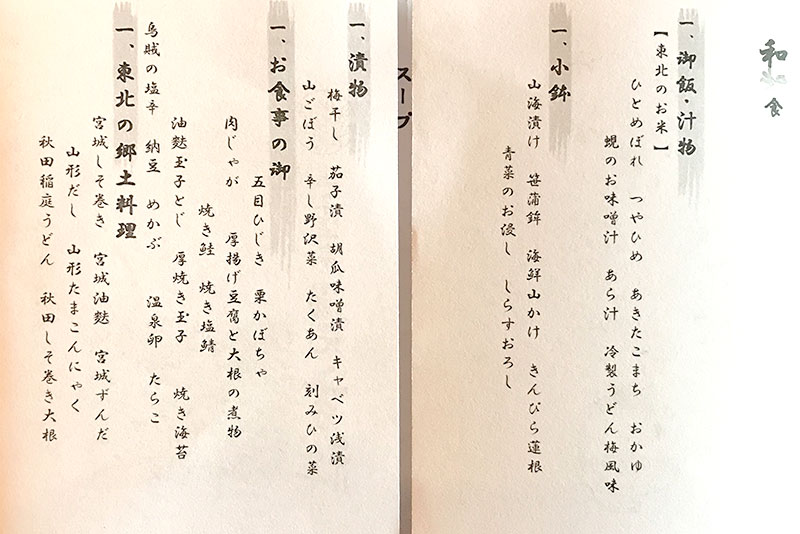 和食
一、御飯・汁物
【東北のお米】
ひとめぼれ つやひめ あきたこまち おかゆ
蜆のお味噌汁 あら汁 冷製うどん梅風味
一、小鉢
山海漬け 笹蒲鉾 海鮮山かけ きんぴら蓮根
青菜のお浸し しらすおろし
スープ
一、漬物
梅干し 茄子漬 胡瓜味噌漬 キャベツ浅漬
山ごぼう 辛し野沢菜 たくあん 刻みひの菜
一、お食事の御
五目ひじき 栗かぼちゃ
肉じゃが 厚揚げ豆腐と大根の煮物
焼き鮭 焼き塩鯖
油麩玉子とじ 厚焼き玉子 焼き海苔
烏賊の塩辛 納豆 めかぶ 温泉卵 たらこ
一、東北の郷土料理
宮城しそ巻き 宮城油麩 宮城ずんだ
山形だし 山形たまこんにゃく
秋田稲庭うどん 秋田しそ巻き大根